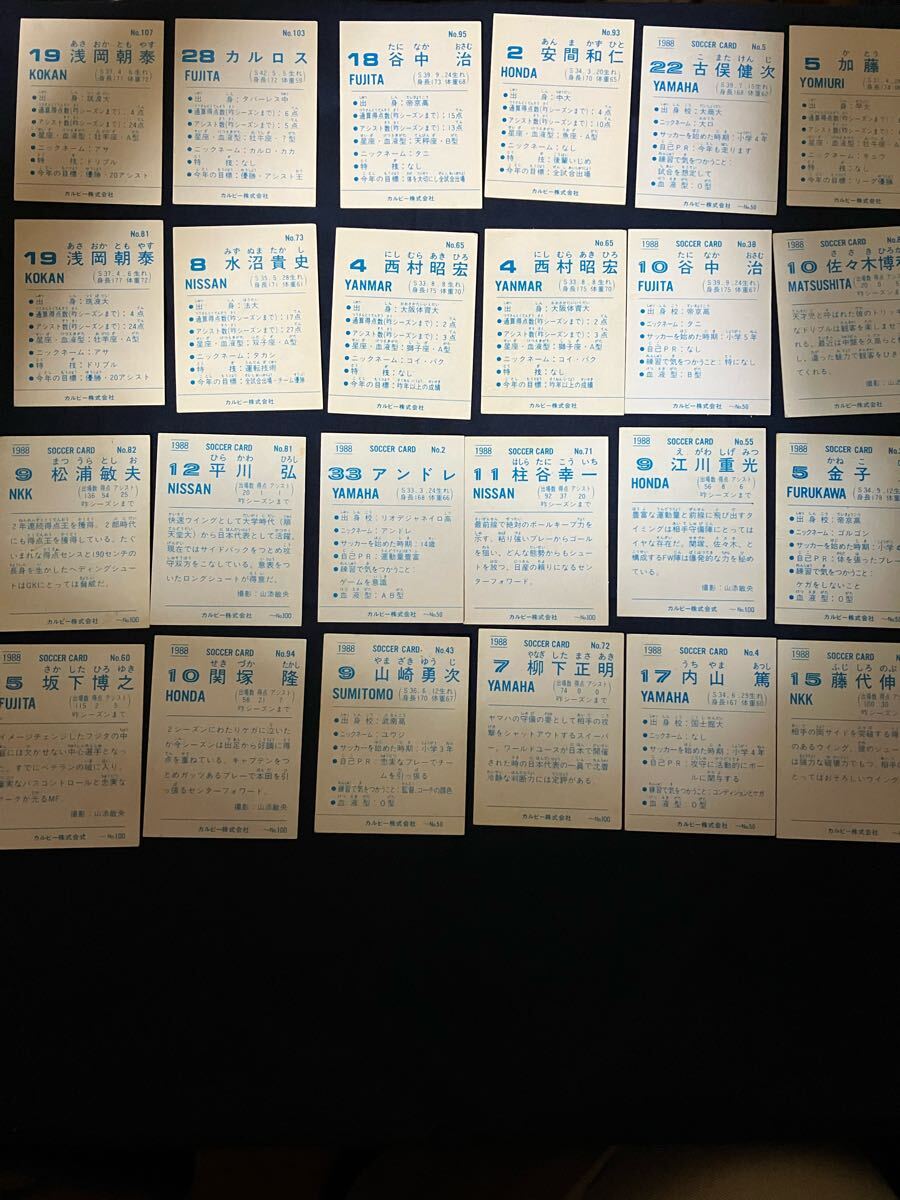 No.107
19 浅岡朝泰
あさ おか とも やす
KOKAN
(S37.4.6生れ
身長171 体重72)
●出身:筑波大
●通算得点数(昨シーズンまで):4点
●アシスト数(昨シーズンまで):24点
●星座・血液型:牡羊座・A型
●ニックネーム:アサ
●特技:ドリブル
●今年の目標:優勝・20アシスト
カルビー株式会社
No.103
28 カルロス
FUJITA
(S42.5.5生れ
身長172 体重59)
●通算得点数(昨シーズンまで):6点
●アシスト数(昨シーズンまで):5点
●ニックネーム:カルロ・カカ
●特技:なし
●今年の目標:優勝・アシスト王
カルビー株式会社
No.95
たに なか おさむ
18 谷中 治
FUJITA
(S39.9.24生れ
身長173 体重68)
●出身:帝京高
●通算得点数(昨シーズンまで):15点
●アシスト数(昨シーズンまで):13点
●星座・血液型:天秤座・B型
●ニックネーム:タニ
●特技:なし
●今年の目標:体を大切にし全試合出場
カルビー株式会社
No.93
あん ま かず ひと
2 安間和仁
HONDA
(S34.3.20生れ
身長170 体重65)
●出身:中大
●通算得点数(昨シーズンまで):4点
●アシスト数(昨シーズンまで):10点
●星座・血液型:魚座・A型
●ニックネーム:なし
●特技:後輩いじめ
●今年の目標:全試合出場
カルビー株式会社
1988 SOCCER CARD No.5
こ また けん じ
22 古俣健次
YAMAHA
(S39.7.15生れ
身長168 体重62)
●出身校:大商大
●ニックネーム:大口
●サッカーを始めた時期:小学4年
●自己PR:今年も走ります
●練習で気をつかうこと:
試合を想定して
●血液型:O型
カルビー株式会社 〜No.50
か とう
5 加藤
YOMIURI
●出身:早大
●特技:なし
●今年の目標:リーグ優勝
No.81
あさ おか とも やす
19 浅岡朝泰
KOKAN
(S37.4.6生れ
身長177 体重72)
●出身:筑波大
●通算得点数(昨シーズンまで):4点
●アシスト数(昨シーズンまで):24点
●星座・血液型:牡羊座・A型
●ニックネーム:アサ
●特技:ドリブル
●今年の目標:優勝・20アシスト
カルビー株式会社
No.73
みず ぬま たか し
8 水沼貴史
NISSAN
(S35.5.28生れ
身長171 体重61)
●出身:法大
●通算得点数(昨シーズンまで):17点
●アシスト数(昨シーズンまで):27点
●星座・血液型:双子座・A型
●ニックネーム:タカシ
●特技:運転技術
●今年の目標:全試合出場・チーム優勝
カルビー株式会社
No.65
にし むら あき ひろ
4 西村昭宏
YANMAR
(S33.8.8生れ
身長175 体重70)
●出身:大阪体育大
●通算得点数(昨シーズンまで):2点
●アシスト数(昨シーズンまで):3点
●星座・血液型:獅子座・A型
●ニックネーム:コイ・バク
●特技:なし
●今年の目標:昨年以上の成績
カルビー株式会社
No.65
にし むら あき ひろ
4 西村昭宏
YANMAR
(S33.8.8生れ
身長175 体重70)
●出身:大阪体育大
●通算得点数(昨シーズンまで):2点
●アシスト数(昨シーズンまで):3点
●星座・血液型:獅子座・A型
●ニックネーム:コイ・バク
●特技:なし
●今年の目標:昨年以上の成績
カルビー株式会社
1988 SOCCER CARD No.38
たに なか おさむ
10 谷中 治
FUJITA
(S39.9.24生れ
身長175 体重67)
●出身校:帝京高
●ニックネーム:タニ
●サッカーを始めた時期:小学5年
●自己PR:なし
●練習で気をつかうこと:特になし
●血液型:B型
カルビー株式会社 〜No.50
1988 SOCCER CARD
さ さ き ひろ
10 佐々木博和
MATSUSHITA
天才児と呼ばれた彼のトリッキ
なドリブルは観客を楽しませ
し、違った魅力で観客をひき
てくれる。
撮影:山添
カルビー株式会社
1988 SOCCER CARD No.82
まつ うら とし お
9 松浦敏夫
NKK
(出場数 得点 アシスト
136 54 25)
昨シーズンまで
2年連続得点王を獲得。2部時代
にも得点王を獲得している。たぐ
いまれな得点センスと190センチの
長身を生かしたヘディングシュート
はGKにとっては脅威だ。
カルビー株式会社 〜No.100
1988 SOCCER CARD No.81
ひら かわ ひろし
12 平川 弘
NISSAN
(出場数 得点 アシスト
20 1 1)
昨シーズンまで
快速ウイングとして大学時代(順
天堂大)から日本代表として活躍。
現在ではサイドバックをつとめ攻
守双方をこなしている。意表をつ
いたロングシュートが得意だ。
撮影:山添敏央
カルビー株式会社 〜No.100
SOCCER CARD No.2
33 アンドレ
YAMAHA
(S33.3.24生れ
身長168 体重66)
●出身校:リオデジャネイロ高
●ニックネーム:アンドレ
●サッカーを始めた時期:14歳
●自己PR:運動量豊富
●練習で気をつかうこと:
ゲームを意識
●血液型:AB型
カルビー株式会社 〜No.50
1988 SOCCER CARD No.71
はしら たに こう いち
11 柱谷幸一
NISSAN
(出場数 得点 アシスト
92 37 20)
昨シーズンまで
最前線で絶対のボールキープ力を
示す。粘り強いプレーからゴール
を狙い、どんな態勢からもシュー
トを放つ、日産の頼りになるセン
ターフォワード。
カルビー株式会社 〜No.100
1988 SOCCER CARD No.55
え がわ しげ みつ
9 江川重光
HONDA
(出場数 得点 アシスト
56 8 6)
昨シーズンまで
豊富な運動量と前線に飛び出すタ
イミングは相手守備陣にとっては
イヤな存在だ。関塚、佐々木、と
構成するFW陣は爆発的な力を秘め
ている。
撮影:山添敏央
カルビー株式会社 〜No.100
1988 SOCCER CARD
かね こ
5 金子
FURUKAWA
●出身校:帝京高
●ニックネーム:ゴルゴン
●サッカーを始めた時期:小学
●自己PR:体を張ったプレー
●練習で気をつかうこと:
ケガをしないこと
●血液型:O型
カルビー株式会社
1988 SOCCER CARD No.60
さか した ひろ ゆき
5 坂下博之
FUJITA
(出場数 得点 アシスト
115 2 5)
昨シーズンまで
イメージチェンジしたフジタの中
盤には欠かせない中心選手となっ
た。すでにベテランの域に入り、
確実なパスコントロールと忠実な
マークが光るMF。
カルビー株式会社 〜No.100
1988 SOCCER CARD No.94
せき づか たかし
10 関塚 隆
HONDA
(出場数 得点 アシスト
58 21 7)
昨シーズンまで
2シーズンにわたりケガに泣いた
が今シーズンは出足から好調に得
点を重ねている。キャプテンをつ
とめガッツあるプレーで本田を引
っ張るセンターフォワード。
撮影:山添敏央
カルビー株式会社 〜No.100
SOCCER CARD No.43
やま ざき ゆう じ
9 山崎勇次
SUMITOMO
(S36.6.12生れ
身長170 体重67)
●出身校:武南高
●ニックネーム:ユウジ
●サッカーを始めた時期:小学3年
●自己PR:忠実なプレーでチー
ムを引っ張る
●練習で気をつかうこと:監督、コーチの顔色
●血液型:O型
カルビー株式会社 〜No.50
1988 SOCCER CARD No.72
やなぎ した まさ あき
7 柳下正明
YAMAHA
(出場数 得点 アシスト
74 0 0)
昨シーズンまで
ヤマハの守備の要として相手の攻
撃をシャットアウトするスイーパ
ー。ワールドユースが日本で開催
された時の日本代表の一員で沈着
冷静な判断力には定評がある。
カルビー株式会社 〜No.100
1988 SOCCER CARD No.4
うち やま あつし
17 内山 篤
YAMAHA
(S34.6.29生れ
身長167 体重60)
●出身校:国士館大
●ニックネーム:なし
●サッカーを始めた時期:小学4年
●自己PR:攻守に活動的にボー
ルに関与する
●練習で気をつかうこと:コンディションとケガ
●血液型:O型
カルビー株式会社 〜No.50
1988 SOCCER CARD
ふじ しろ のぶ
15 藤代伸
NKK
相手の両サイドを突破する
のあるウイング。彼のシュー
は強力な破壊力でもつ。相手
とってはおそろしいウイング
カルビー株式会社